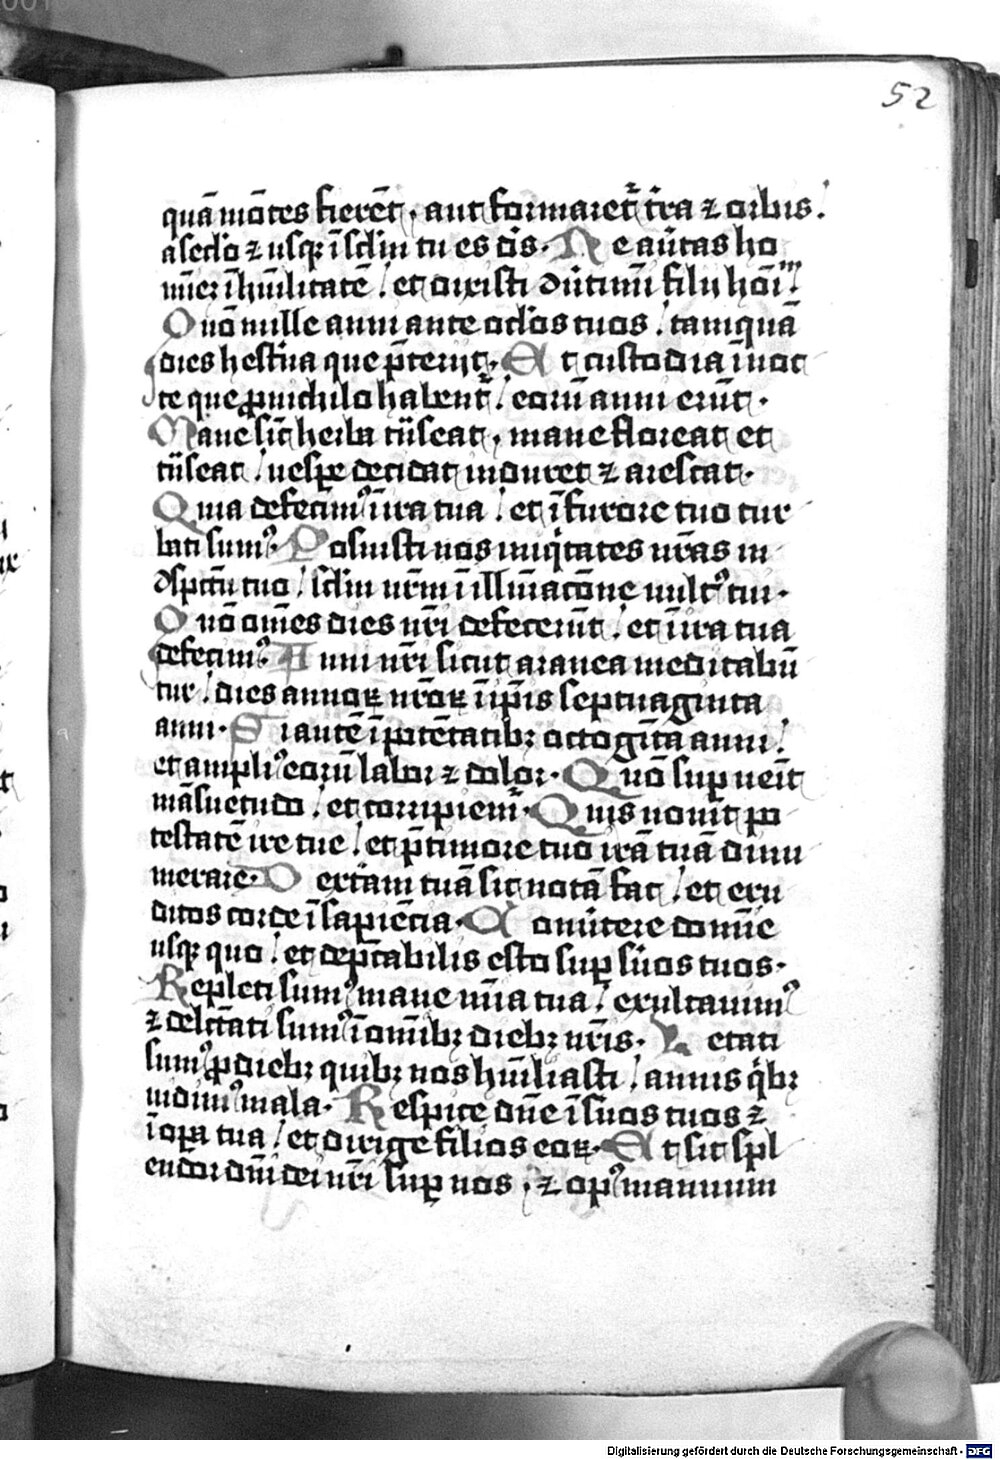 52
quā mōtes fierēt, aut formaret᷑ t̄ra ⁊ orbis!
a sc̄lo ⁊ usq; ī sc̄lm tu es d̄s. Ne au̾tas ho
mīez ī hūilitatē! et dixisti ꝯu̾timī filij hoīm!
Qūo mille anni ante oc̄los tuos! tamquā
dies hest̾na que p̄terijt. Et custodia ī noc
te que ꝓ nichilo habent᷑! eorū anni erūt.
Mane sic̄ herba t̄nseat, mane floreat et
t̄nseat! uesꝑe decidat induret ⁊ arescat.
Quia defecimꝰ ī ira tua! et ī furore tuo tur
bati sumꝰ. Posuisti nos iniqͥtates nr̄as in
ꝯspc̄tu tuo! sc̄lm nr̄m ī illīacōne uultꝰ tui.
Qūo om̄es dies nr̄i defecerūt! et ī ira tua
defecimꝰ. Anni nr̄i sicut aranea meditabū
tur! dies annoꝝ nr̄oꝝ ī ip̄is septuaginta
anni. Si autē ī potētatibꝫ octogīta anni!
et ampliꝰ eorū labor ⁊ dolor. Qūo suꝑueīt
māsuetudo! et corripiem᷑. Quis nouit po
testatē ire tue! et p̄ timore tuo irā tuā dinu
merare. Dext̾am tuā sic notā fac! et eru
ditos corde ī sapiētia. Conu̾tere domīe
usq; quo! et dep̄cabilis esto suꝑ s̾uos tuos.
Repleti sumꝰ mane mīa tua! exultauimꝰ
⁊ delc̄tati sumꝰ ī om̄ibꝫ diebꝫ nr̄is. Letati
sumꝰ ꝓ diebꝫ quibꝫ nos hūiliasti! annis qͥbꝫ
uidimꝰ mala. Respice dn̄e ī s̾uos tuos ⁊
ī oꝑa tua! et dirige filios eoꝝ. Et sit spl
endor dn̄i dei nr̄i suꝑ nos, ⁊ opꝰ manuum
Digitalisierung gefördert durch die Deutsche Forschungsgemeinschaft - DFG